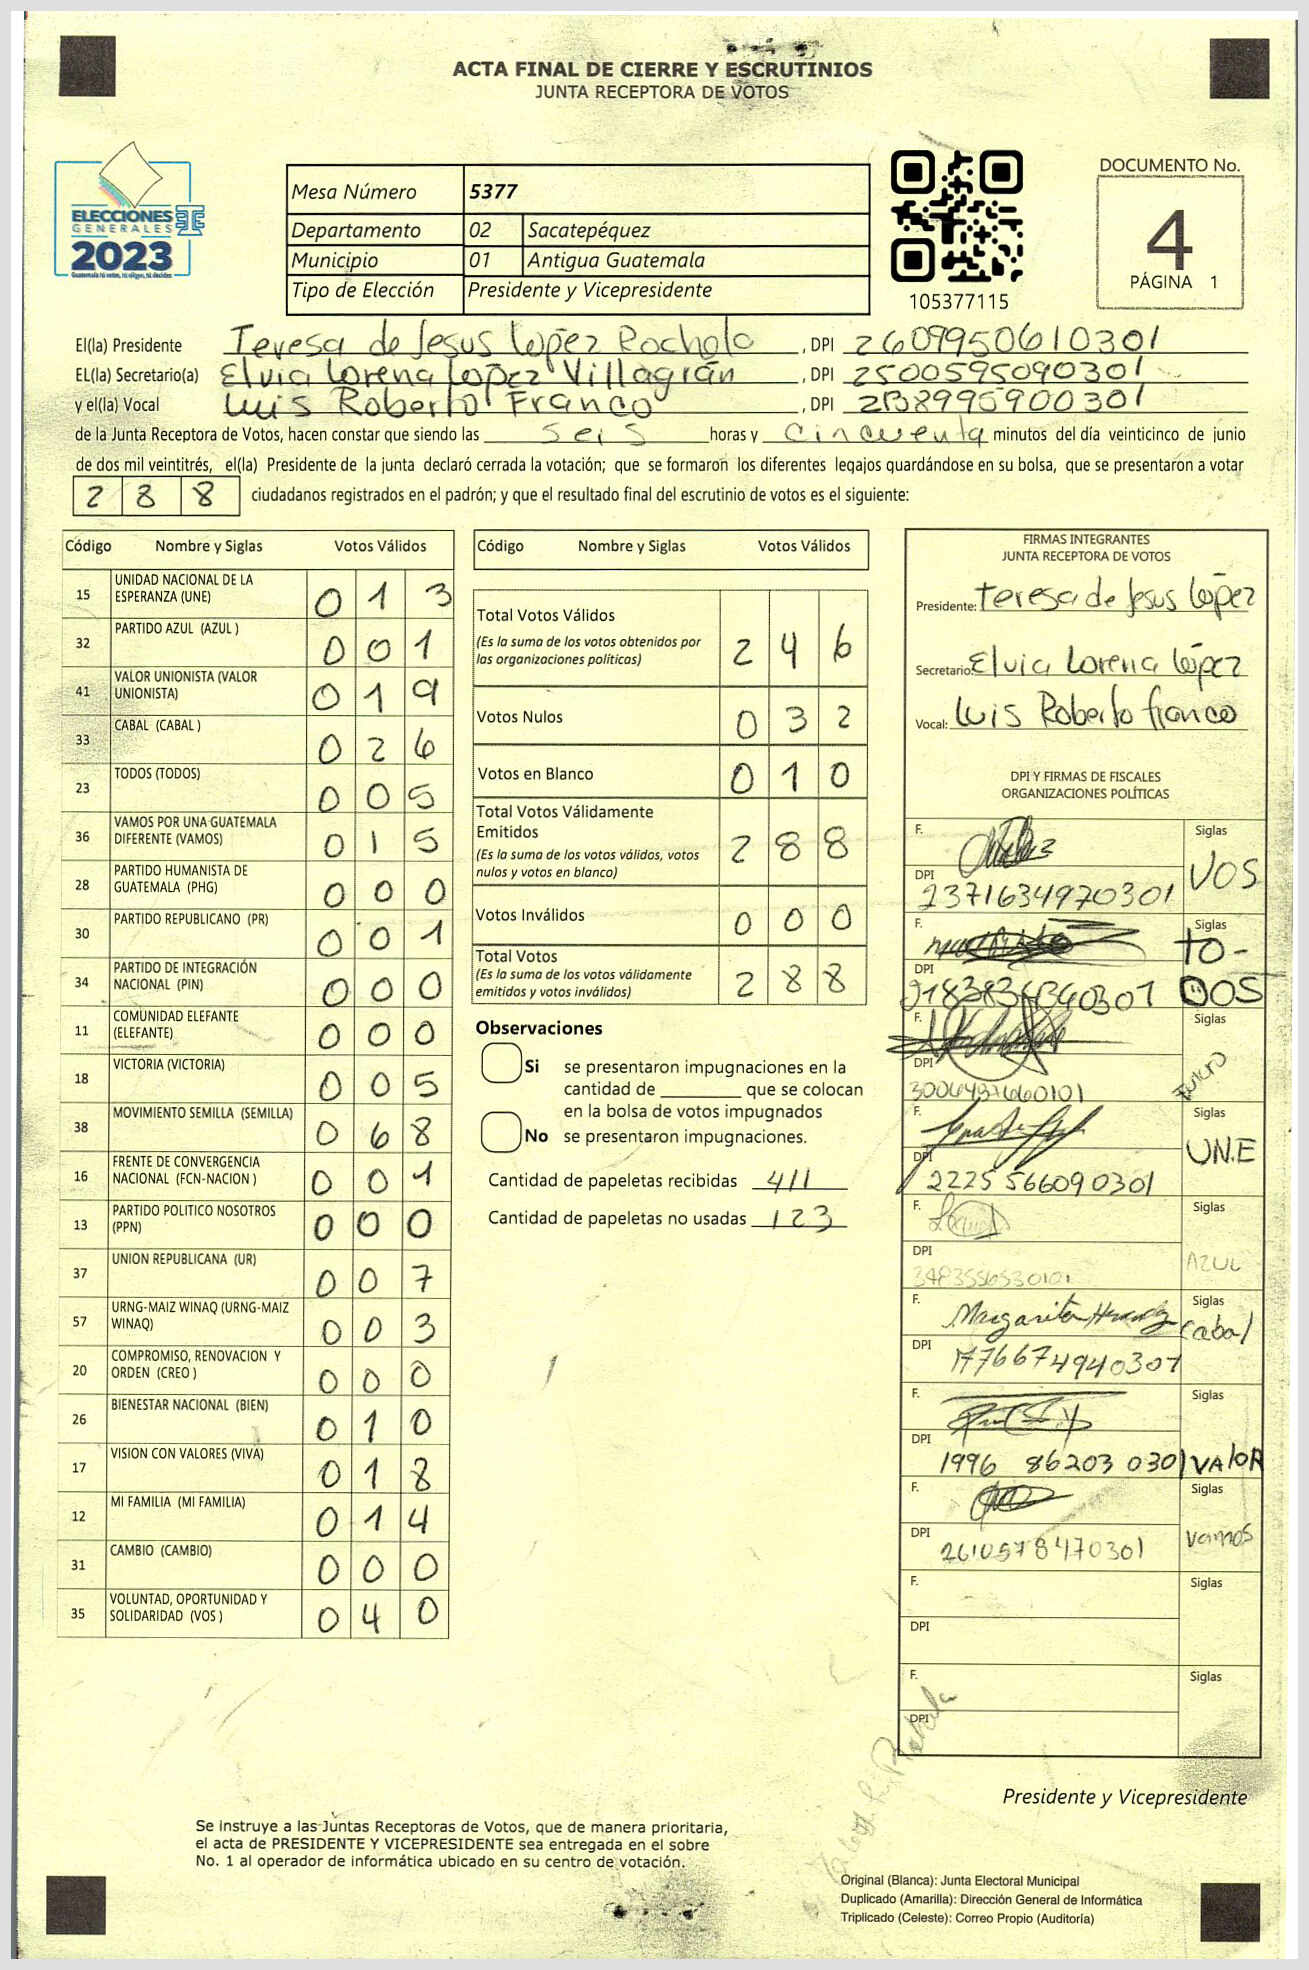 ACTA FINAL DE CIERRE Y ESCRUTINIOS
JUNTA RECEPTORA DE VOTOS
ELECCIONES
GENERALES
2023
Guatemala tú votas, tú eliges, tú decides
Mesa Número 5377
Departamento 02 Sacatepéquez
Municipio 01 Antigua Guatemala
Tipo de Elección Presidente y Vicepresidente
105377115
DOCUMENTO No.
4
PÁGINA 1
El(la) Presidente Teresa de Jesus López Rochola, DPI 2609950610301
EL(la) Secretario(a) Elvia Lorena López Villagrán, DPI 2500595090301
y el(la) Vocal Luis Roberto Franco, DPI
de la Junta Receptora de Votos, hacen constar que siendo las seis horas y cincuenta minutos del día veinticinco de junio
de dos mil veintitrés, el(la) Presidente de la junta declaró cerrada la votación; que se formaron los diferentes legajos quardándose en su bolsa, que se presentaron a votar
288 ciudadanos registrados en el padrón; y que el resultado final del escrutinio de votos es el siguiente:
Código Nombre y Siglas Votos Válidos
15 UNIDAD NACIONAL DE LA ESPERANZA (UNE) 013
32 PARTIDO AZUL (AZUL ) 001
41 VALOR UNIONISTA (VALOR UNIONISTA) 019
33 CABAL (CABAL ) 026
23 TODOS (TODOS) 005
36 VAMOS POR UNA GUATEMALA DIFERENTE (VAMOS) 015
28 PARTIDO HUMANISTA DE GUATEMALA (PHG) 000
30 PARTIDO REPUBLICANO (PR) 001
34 PARTIDO DE INTEGRACIÓN NACIONAL (PIN) 000
11 COMUNIDAD ELEFANTE (ELEFANTE) 000
18 VICTORIA (VICTORIA) 005
38 MOVIMIENTO SEMILLA (SEMILLA) 068
16 FRENTE DE CONVERGENCIA NACIONAL (FCN-NACION ) 001
13 PARTIDO POLITICO NOSOTROS (PPN) 000
37 UNION REPUBLICANA (UR) 007
57 URNG-MAIZ WINAQ (URNG-MAIZ WINAQ) 003
20 COMPROMISO, RENOVACION Y ORDEN (CREO ) 000
26 BIENESTAR NACIONAL (BIEN) 010
17 VISION CON VALORES (VIVA) 018
12 MI FAMILIA (MI FAMILIA) 014
31 CAMBIO (CAMBIO) 000
35 VOLUNTAD, OPORTUNIDAD Y SOLIDARIDAD (VOS ) 040
Código Nombre y Siglas Votos Válidos
Total Votos Válidos 246
(Es la suma de los votos obtenidos por
las organizaciones políticas)
Votos Nulos 032
Votos en Blanco 010
Total Votos Válidamente
Emitidos 288
(Es la suma de los votos válidos, votos
nulos y votos en blanco)
Votos Inválidos 000
Total Votos 288
(Es la suma de los votos válidamente
emitidos y votos inválidos)
Observaciones
Si se presentaron impugnaciones en la
cantidad de ________ que se colocan
en la bolsa de votos impugnados
No se presentaron impugnaciones.
Cantidad de papeletas recibidas 411
Cantidad de papeletas no usadas 123
FIRMAS INTEGRANTES
JUNTA RECEPTORA DE VOTOS
Presidente: Teresa de Jesus López
Secretario: Elvia Lorena López
Vocal: Luis Roberto Franco
DPI Y FIRMAS DE FISCALES
ORGANIZACIONES POLÍTICAS
F. Siglas
VOS
DPI 2371634970301
F. Siglas
TO-
DOS
DPI
F. Siglas
DPI
F. Siglas
UNE
DPI 2225 566090301
F. Siglas
AZUL
DPI
F. Margarita Siglas
Cabal
DPI
F. Siglas
VALOR
DPI 1996 86203 0301
F. Siglas
Vamos
DPI 2610578470301
F. Siglas
DPI
F. Siglas
DPI
Presidente y Vicepresidente
Se instruye a las Juntas Receptoras de Votos, que de manera prioritaria,
el acta de PRESIDENTE Y VICEPRESIDENTE sea entregada en el sobre
No. 1 al operador de informática ubicado en su centro de votación.
Original (Blanca): Junta Electoral Municipal
Duplicado (Amarilla): Dirección General de Informática
Triplicado (Celeste): Correo Propio (Auditoría)